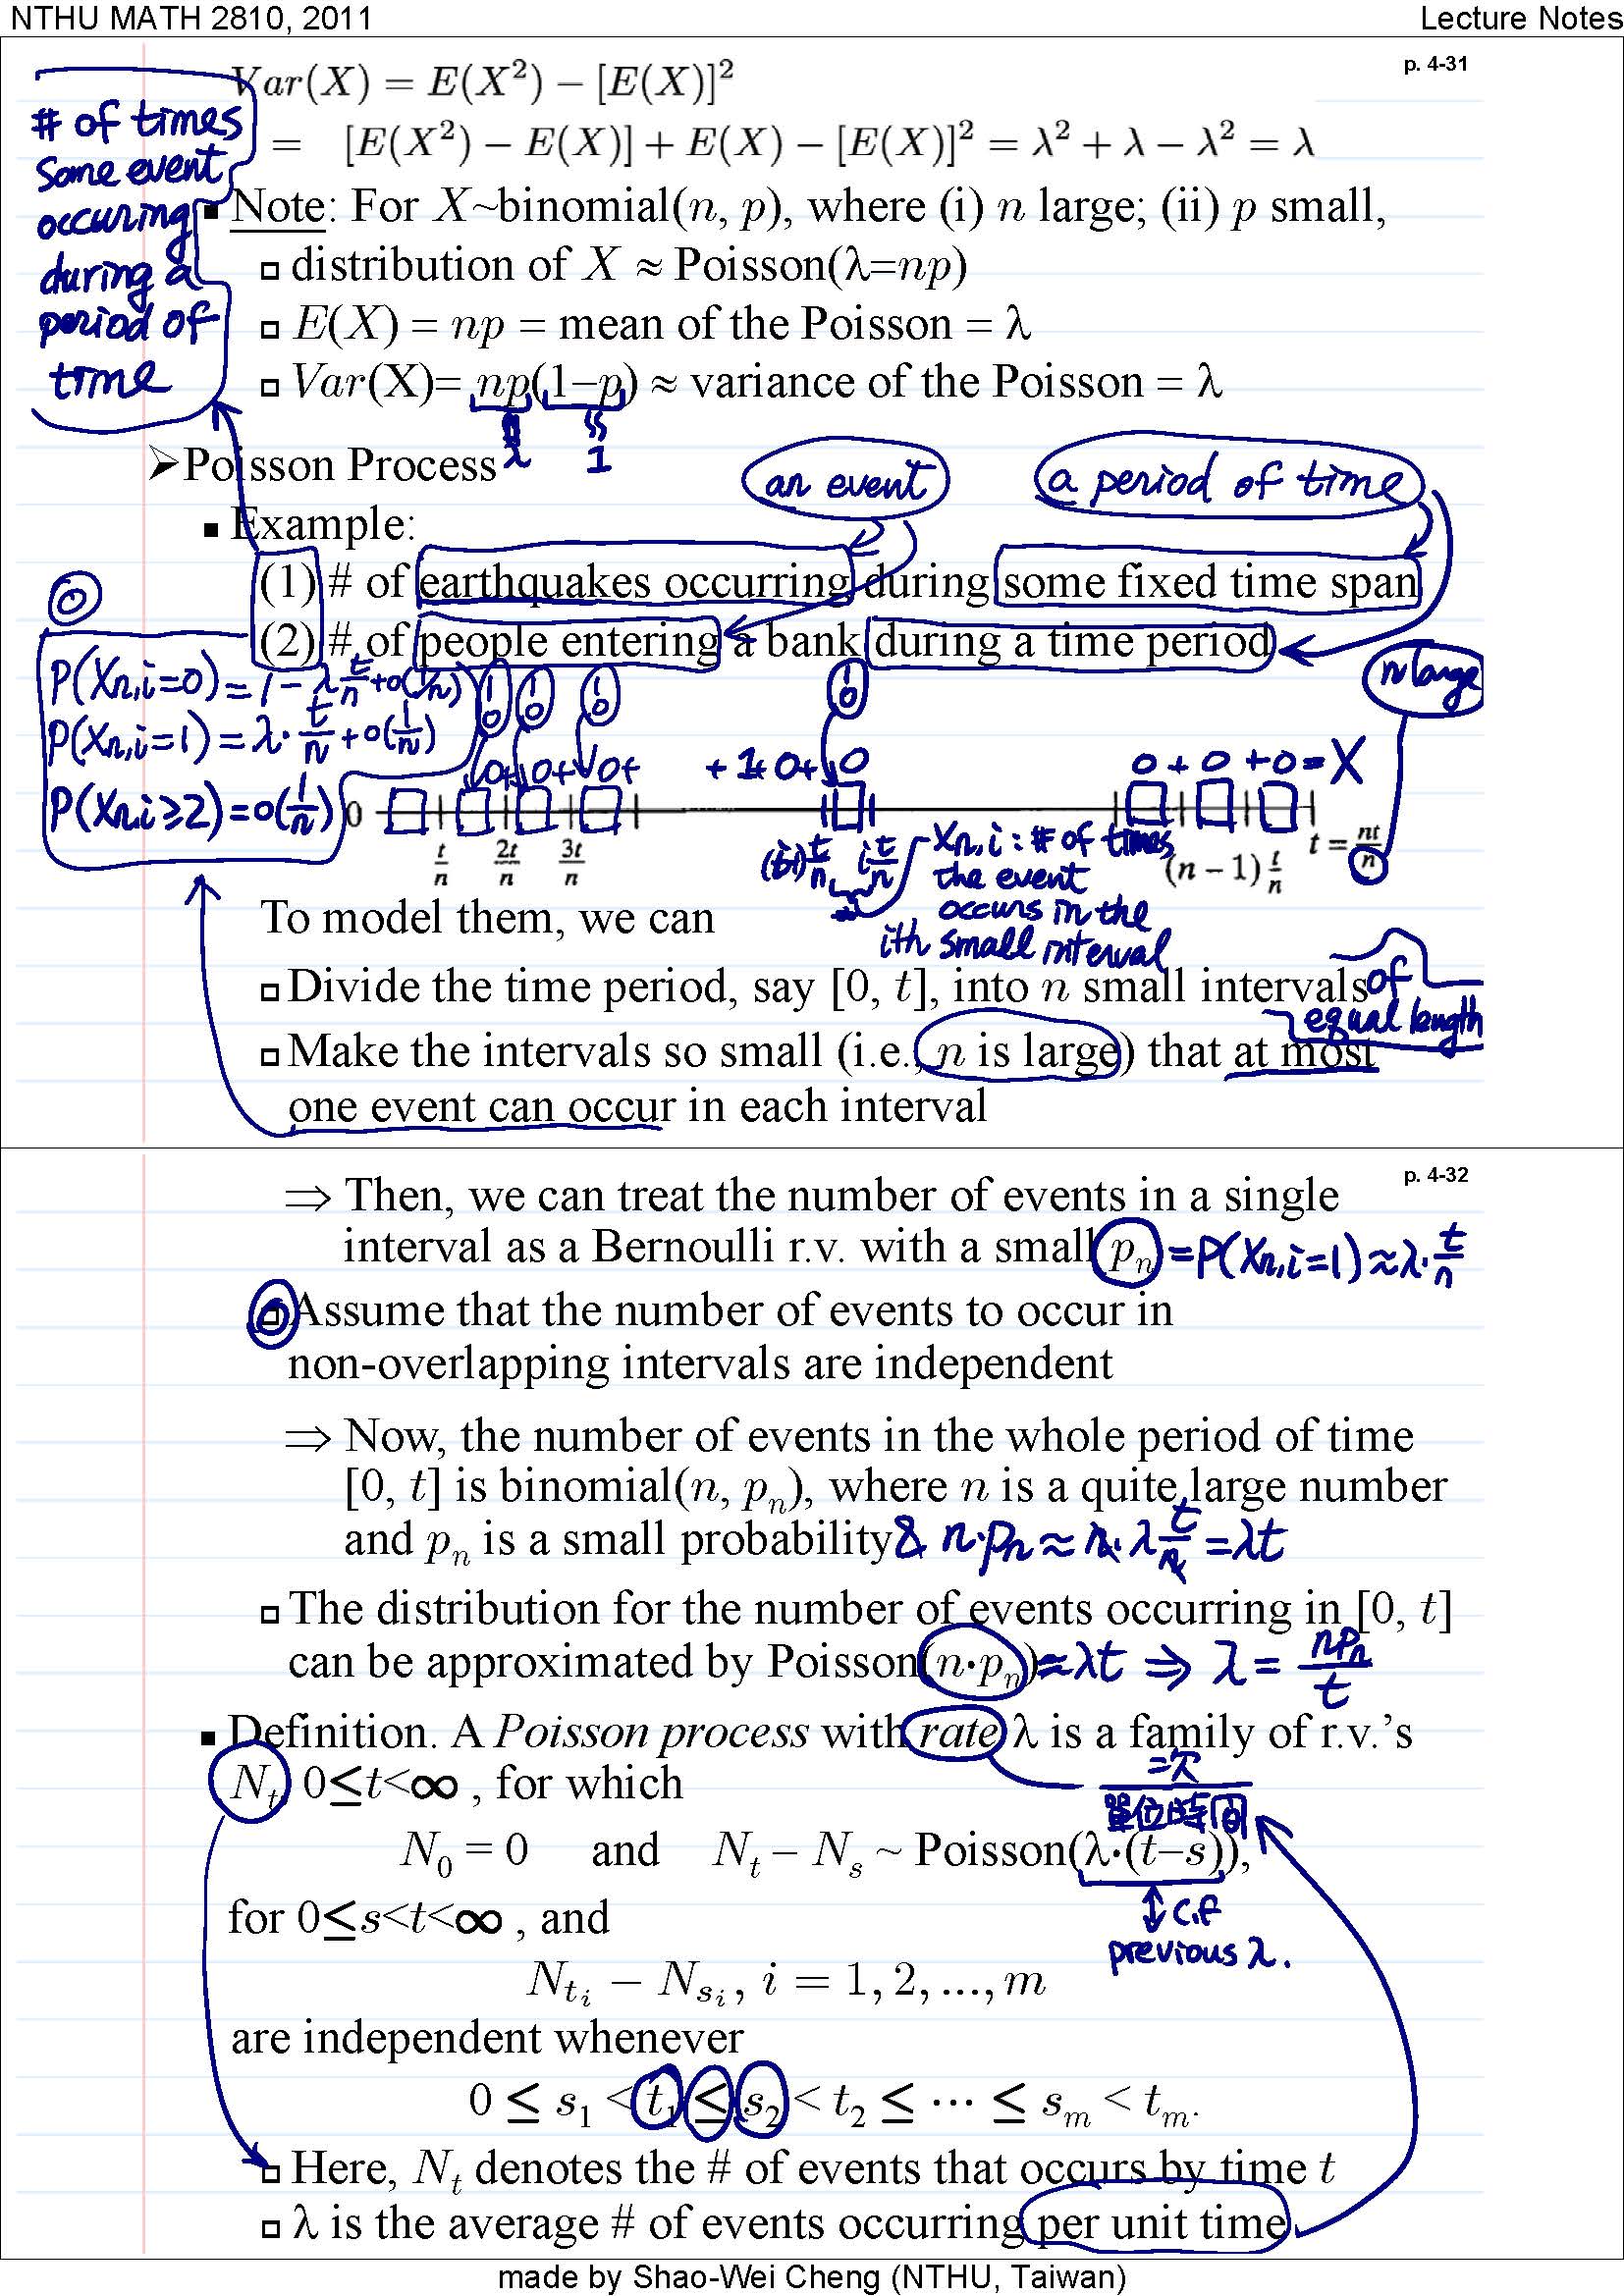 NTHU MATH 2810, 2011
Lecture Notes
p. 4-31
Var(X) = E(X²) − [E(X)]²
= [E(X²) − E(X)] + E(X) − [E(X)]² = λ² + λ − λ² = λ
# of times
some event
occuring
during a
period of
time
▪ Note: For X~binomial(n, p), where (i) n large; (ii) p small,
▫ distribution of X ≈ Poisson(λ=np)
▫ E(X) = np = mean of the Poisson = λ
▫ Var(X)= np(1−p) ≈ variance of the Poisson = λ
λ
1
➢Poisson Process
an event
a period of time
▪ Example:
(1) # of earthquakes occurring during some fixed time span
(2) # of people entering a bank during a time period
n large
P(Xn,i=0) = 1 − λ t/n + o(1/n)
P(Xn,i=1) = λ · t/n + o(1/n)
P(Xn,i ≥ 2) = o(1/n)
1 0 1 0 1 0 1 0
0+ 0+ 0+ +1+ 0+ 0 0 + 0 + 0 = X
0 t/n 2t/n 3t/n i t/n (n − 1) t/n t = nt/n
Xn,i : # of times
the event
occurs in the
ith small interval
To model them, we can
▫ Divide the time period, say [0, t], into n small intervals of
equal length
▫ Make the intervals so small (i.e., n is large) that at most
one event can occur in each interval
p. 4-32
⇒ Then, we can treat the number of events in a single
interval as a Bernoulli r.v. with a small pₙ = P(Xn,i=1) ≈ λ · t/n
▫ Assume that the number of events to occur in
non-overlapping intervals are independent
⇒ Now, the number of events in the whole period of time
[0, t] is binomial(n, pₙ), where n is a quite large number
and pₙ is a small probability & n·pₙ ≈ n · λ t/n = λt
▫ The distribution for the number of events occurring in [0, t]
can be approximated by Poisson(n·pₙ) ≈ λt ⇒ λ = npₙ/t
▪ Definition. A Poisson process with rate λ is a family of r.v.'s
Nₜ 0≤t<∞ , for which
=次
單位時間
N₀ = 0 and Nₜ − Nₛ ~ Poisson(λ·(t−s)),
for 0≤s<t<∞ , and
c.f
previous λ.
N_{t_i} − N_{s_i}, i = 1, 2, ..., m
are independent whenever
0 ≤ s₁ < t₁ ≤ s₂ < t₂ ≤ ··· ≤ sₘ < tₘ.
▫ Here, Nₜ denotes the # of events that occurs by time t
▫ λ is the average # of events occurring per unit time
made by Shao-Wei Cheng (NTHU, Taiwan)